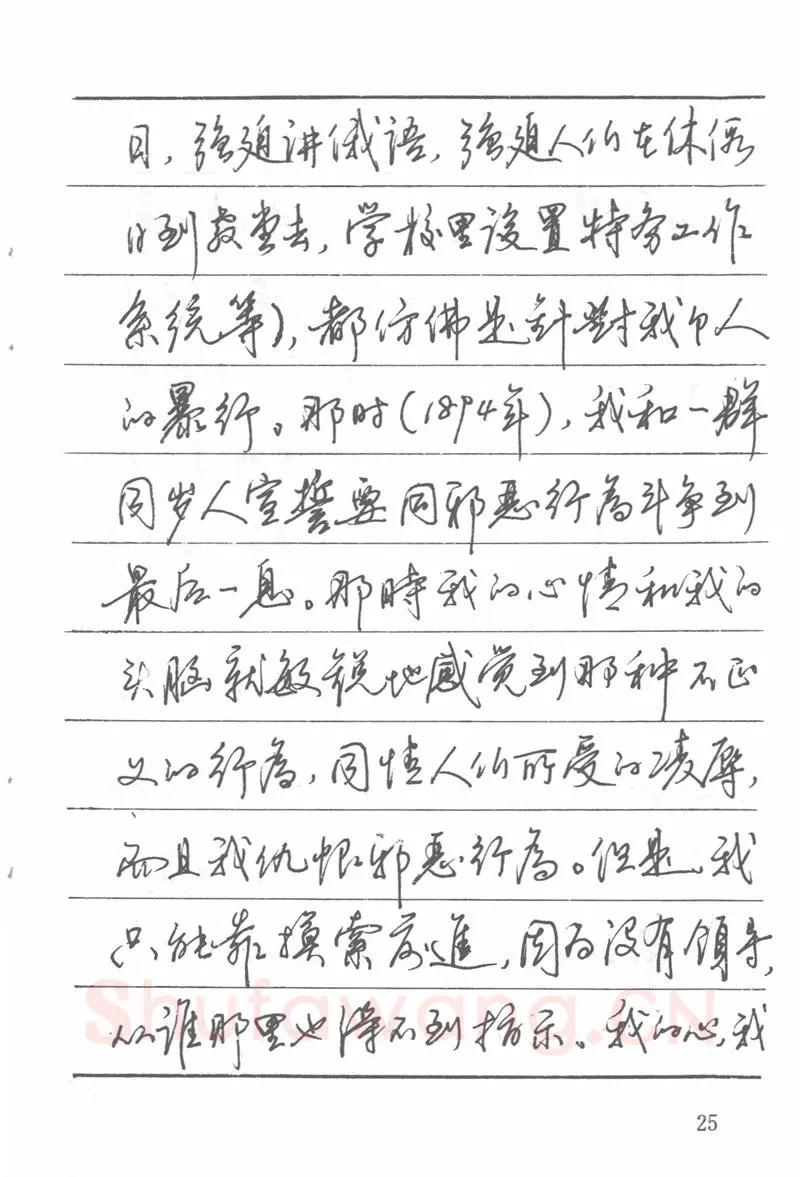 日，强迫讲俄语，强迫人们在休假
日到教堂去，学校里设置特务工作
系统等），都仿佛是針對我个人
的暴行。那时（1894年），我和一群
同岁人宣誓要同邪恶行為斗争到
最后一息。那時我的心情和我的
头脑就敏锐地感觉到那种不正
义的行為，同情人们所受的凌辱，
而且我仇恨邪恶行為。但是，我
只能靠摸索前進，因为没有領导，
从谁那里也得不到指示。我的心，我
Shufawang.CN
25